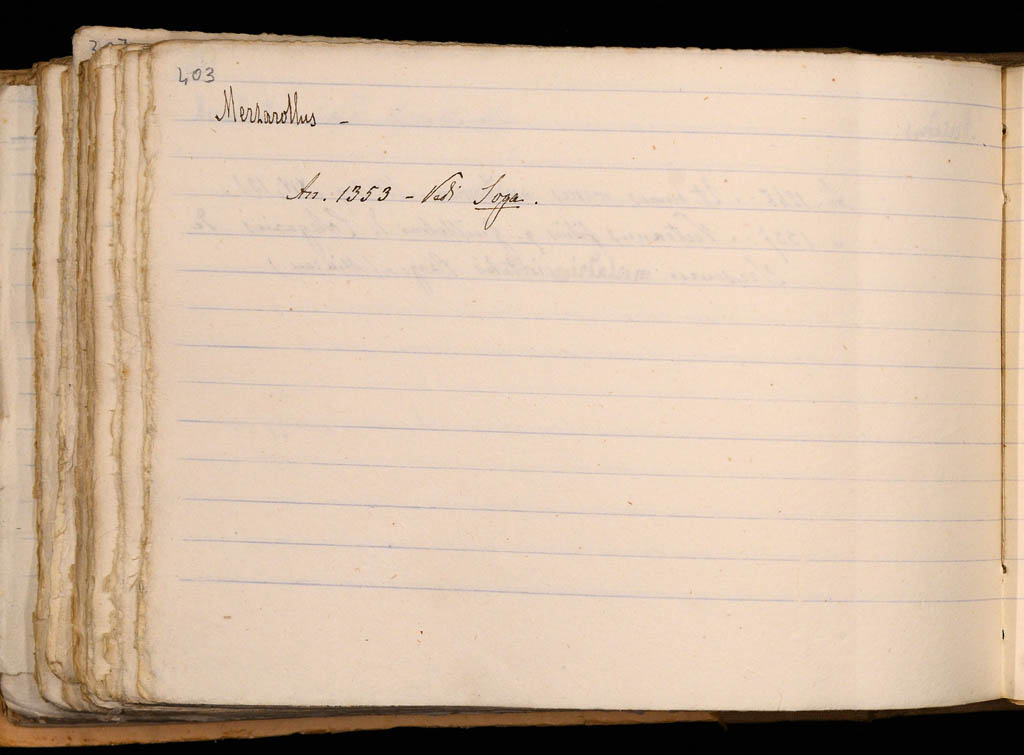 403
Merzarollus -
An. 1353 - Vedi Soga.